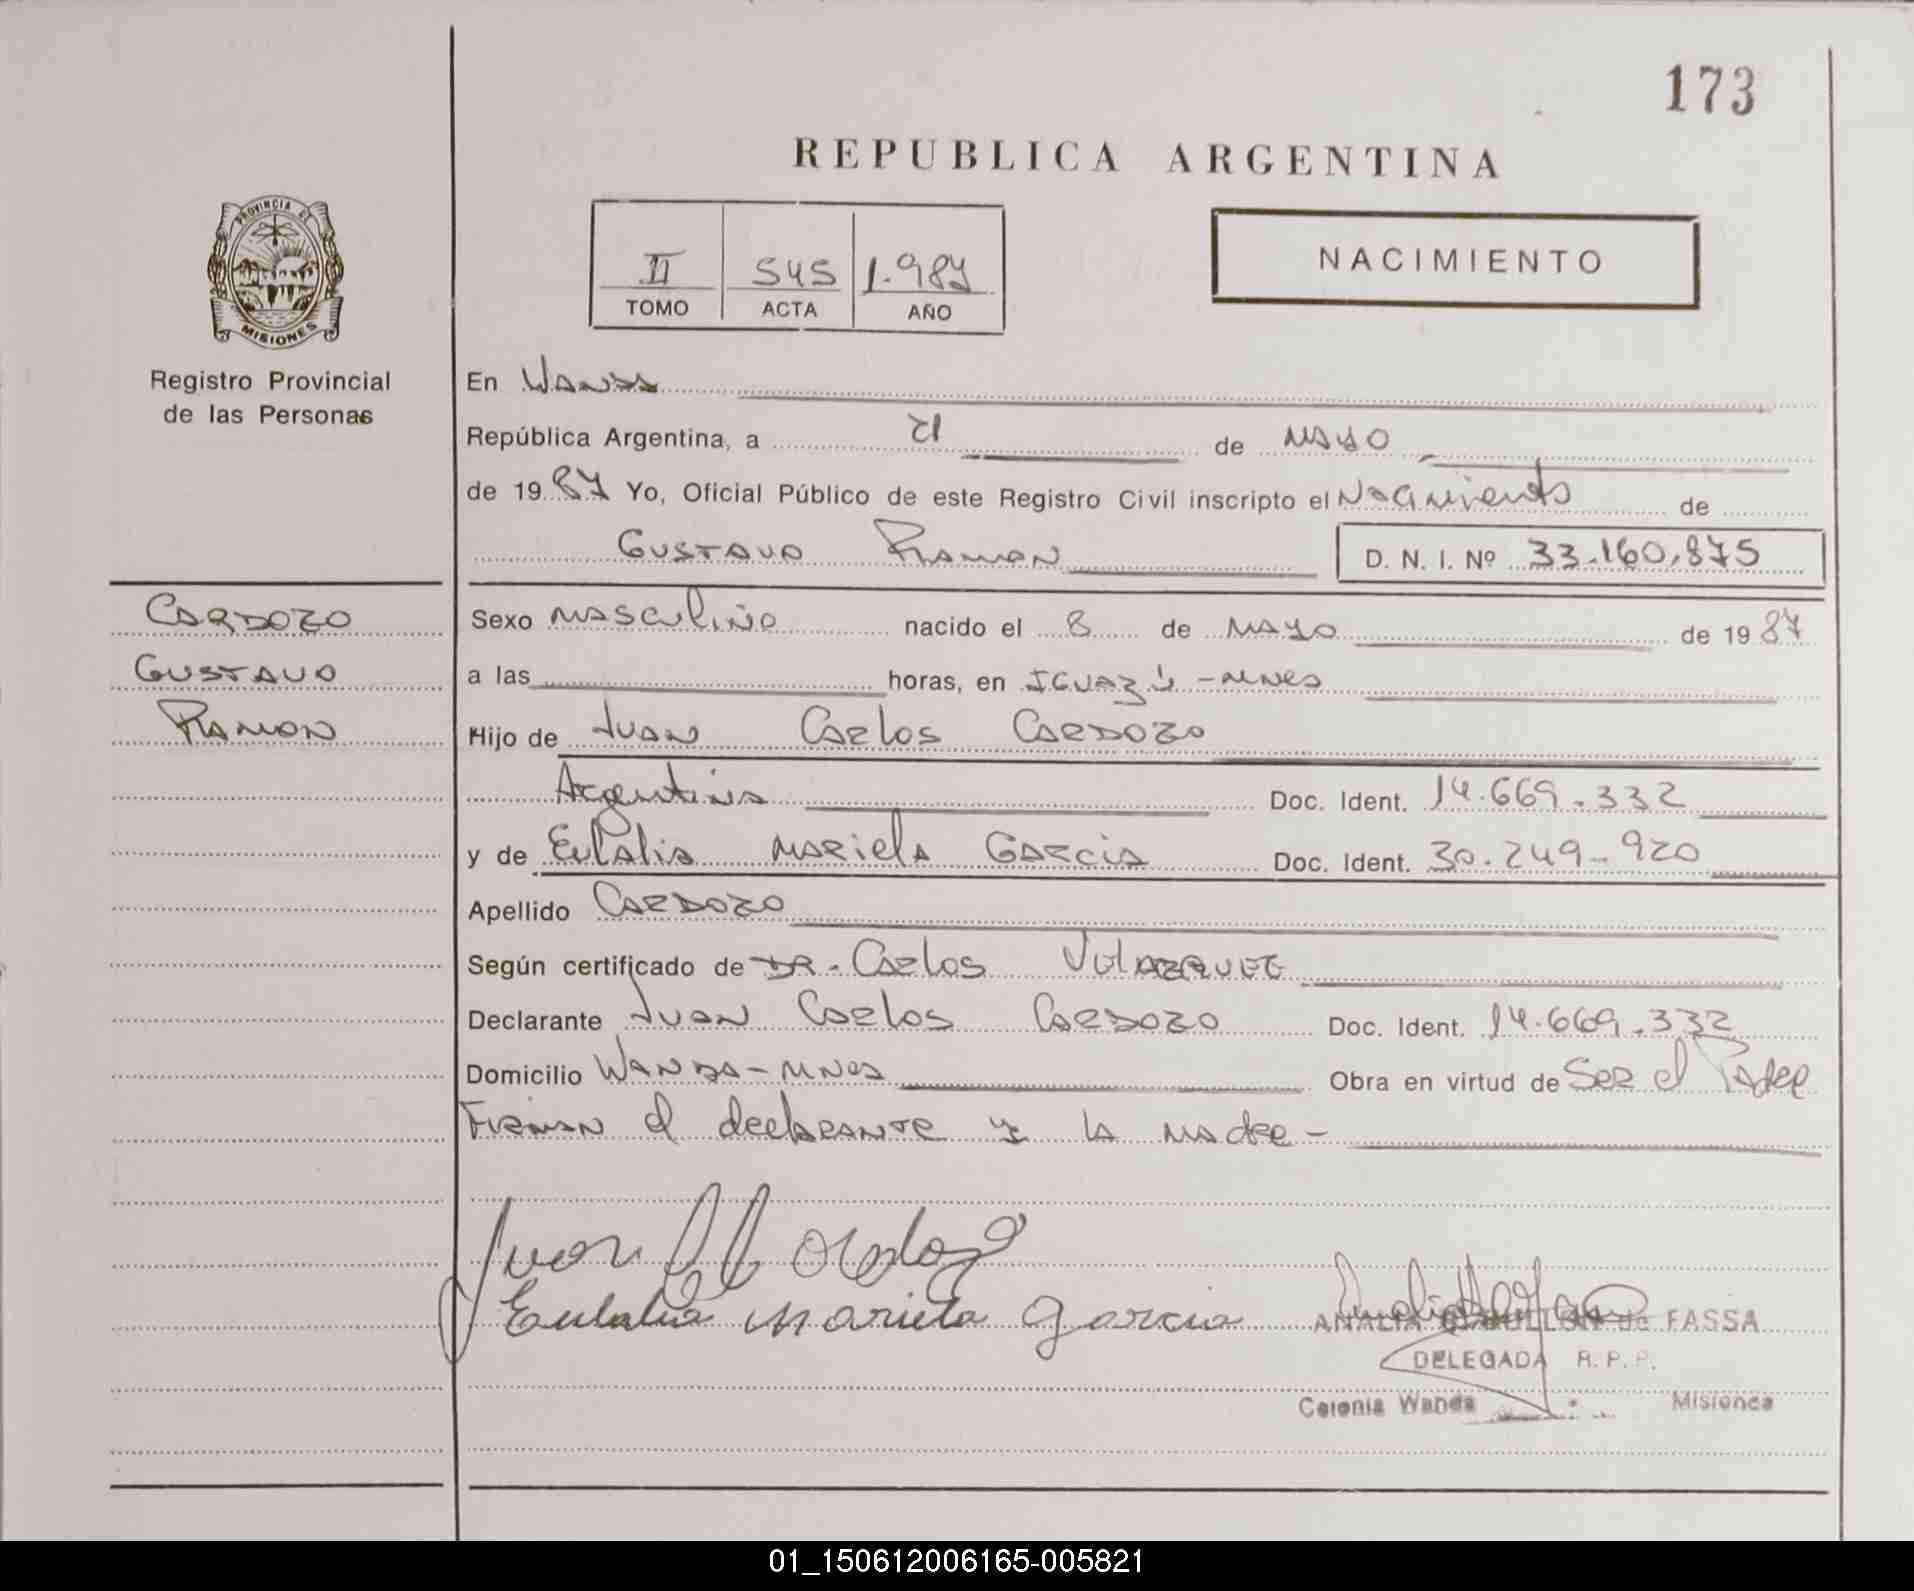 173
REPUBLICA ARGENTINA
PROVINCIA DE
MISIONES
II 545 1.987
TOMO ACTA AÑO
NACIMIENTO
Registro Provincial
de las Personas
En Wanda
República Argentina, a 21 de Mayo
de 1987 Yo, Oficial Público de este Registro Civil inscripto el Nacimiento de
Gustavo Ramon D. N. I. Nº 33.160.875
Cardozo
Gustavo
Ramon
Sexo Masculino nacido el 8 de Mayo de 1987
a las horas, en Iguazú - Mnes
Hijo de Juan Carlos Cardozo
Argentina Doc. Ident. 14.669.332
y de Eulalia Mariela Garcia Doc. Ident. 30.249.920
Apellido Cardozo
Según certificado de DR. Carlos Velazquez
Declarante Juan Carlos Cardozo Doc. Ident. 14.669.332
Domicilio Wanda - Mnes Obra en virtud de Ser el Padre
Firman el declarante y la madre -
Juan C Cardozo
Eulalia Mariela Garcia
ANALIA de FASSA
DELEGADA R. P. P.
Colonia Wanda Misiones
01_150612006165-005821